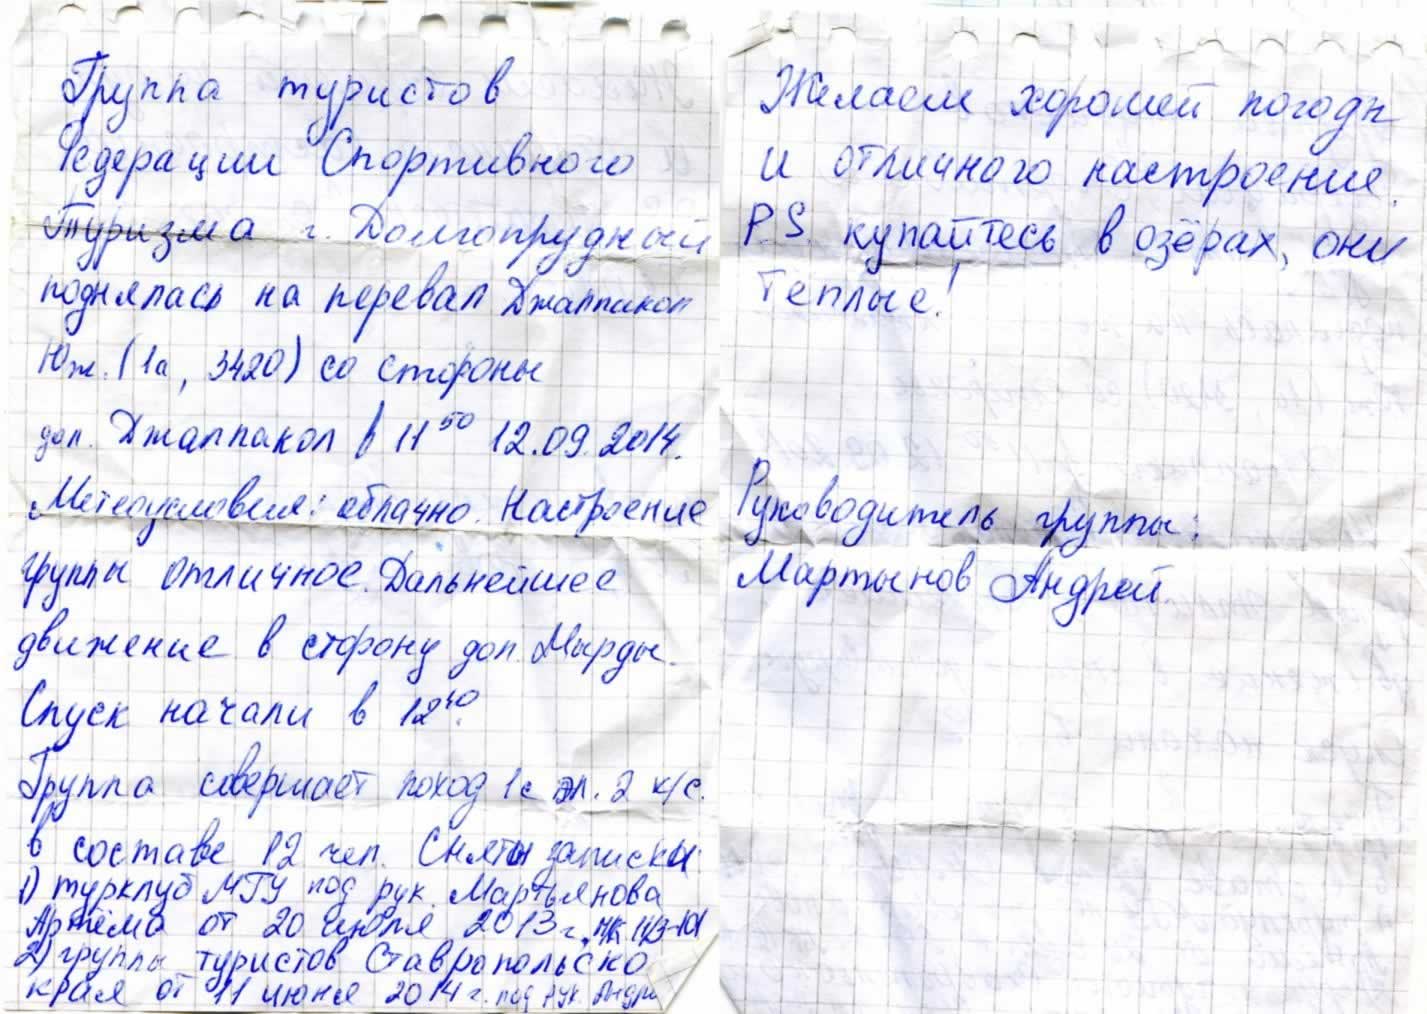 Группа туристов
Федерации Спортивного
Туризма г. Долгопрудный
поднялась на перевал Джалпакол
Юж. (1а, 3420) со стороны
дол. Джалпакол в 11⁵⁰ 12.09.2014.
Метеоусловия: облачно. Настроение
группы отличное. Дальнейшее
движение в сторону дол. Мырды.
Спуск начали в 12⁴⁰.
Группа совершает поход 1 с эл. 2 к/с.
в составе 12 чел. Сняты записки
1) турклуб МГУ под рук. Мартьянова
Артёма от 20 июля 2013г.,
2) группы туристов Ставропольско
края от 11 июня 2014г. под рук. Андре
Желаем хорошей погоды
и отличного настроение.
P.S. купайтесь в озёрах, они
теплые!
Руководитель группы:
Мартынов Андрей.